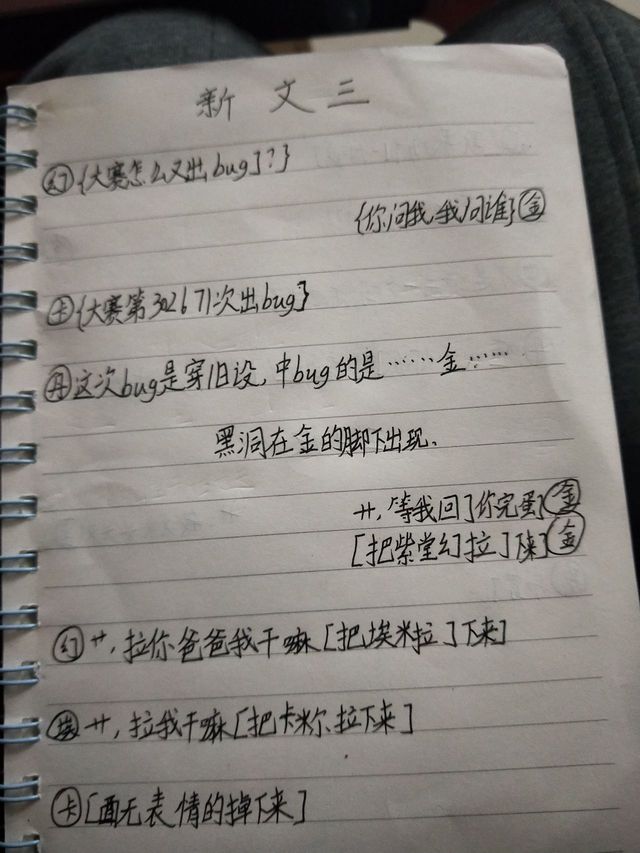 新文三
幻{大赛怎么又出bug了?}
{你问我,我问谁}金
卡{大赛第302671次出bug}
丹这次bug是穿旧设,中bug的是……金……
黑洞在金的脚下出现.
艹,等我回了你完蛋了金
[把紫堂幻拉了下来]金
幻艹,拉你爸爸我干嘛[把埃米拉了下来]
埃艹,拉我干嘛[把卡米尔拉下来]
卡[面无表情的掉下来]